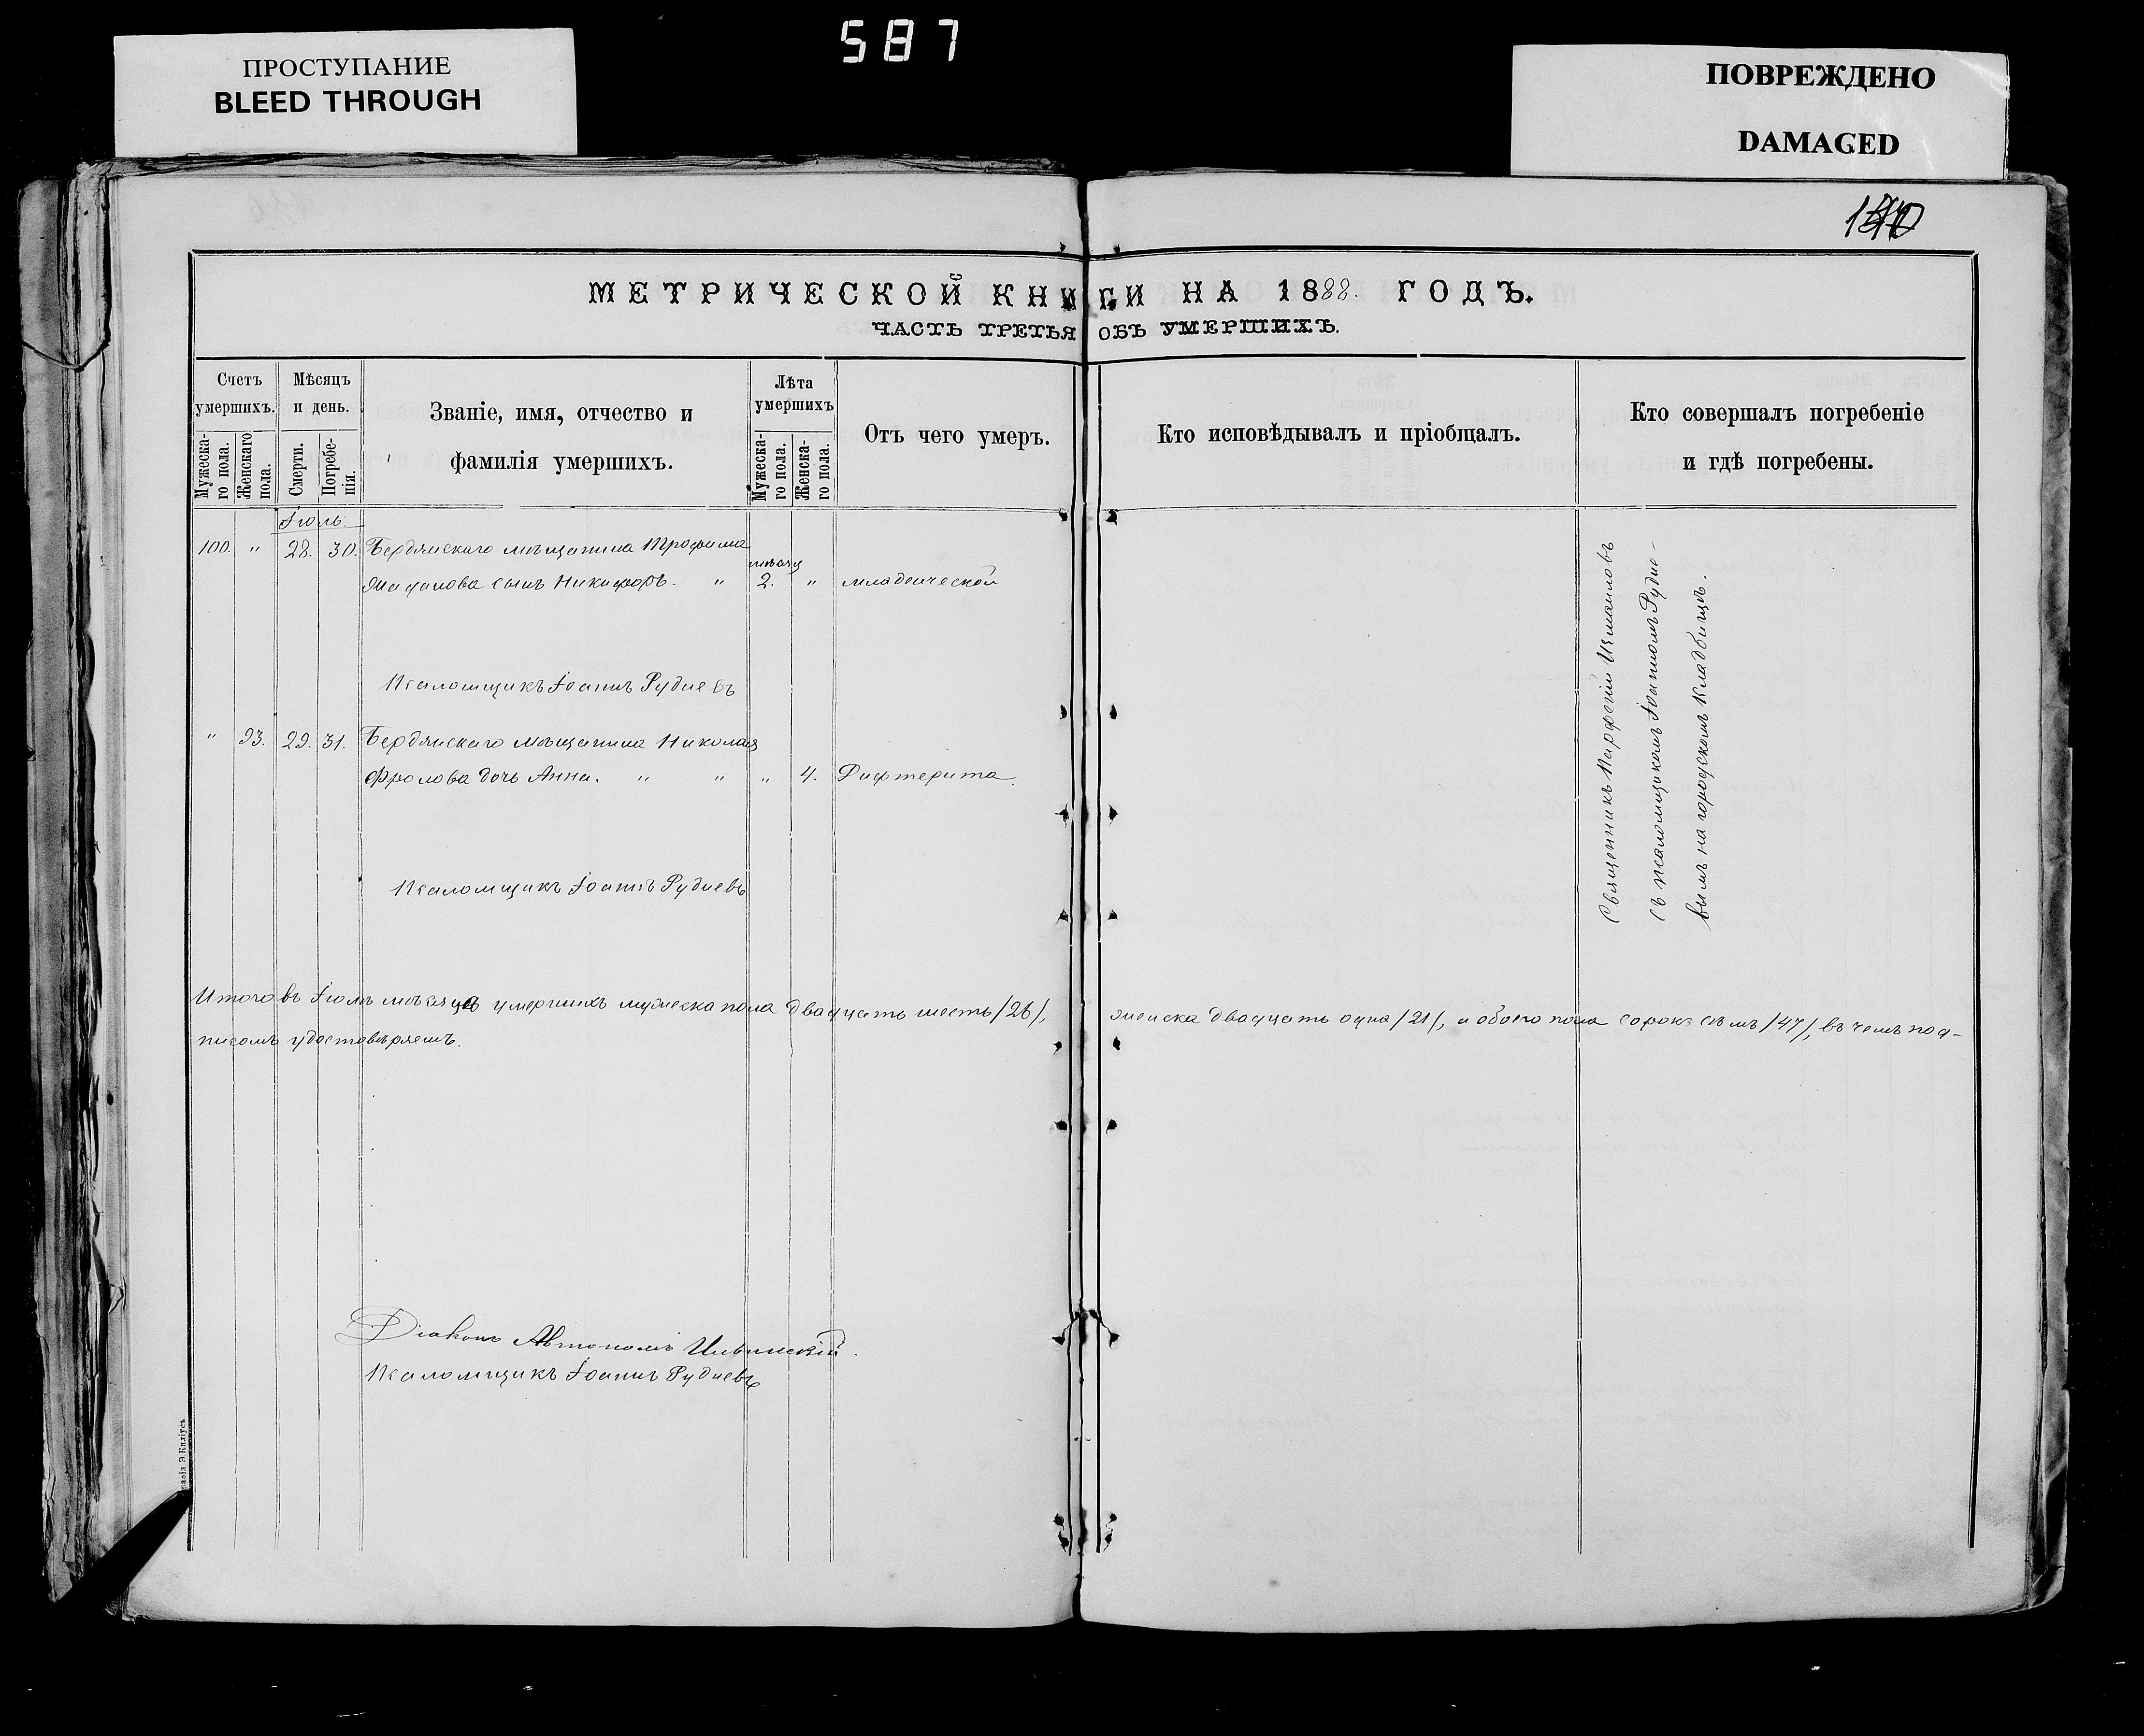 ПРОСТУПАНИЕ
BLEED THROUGH
587
ПОВРЕЖДЕНО
DAMAGED
МЕТРИЧЕСКОЙ КНИГИ НА 1888. ГОДЪ.
ЧАСТЬ ТРЕТЬЯ ОБЪ УМЕРШИХЪ.
Счетъ умершихъ.
Мужескаго пола.
Женскаго пола.
Мѣсяцъ и день.
Смерти.
Погребенія.
Званіе, имя, отчество и
фамилія умершихъ.
Лѣта умершихъ
Мужескаго пола.
Женскаго пола.
Отъ чего умеръ.
Кто исповѣдывалъ и пріобщалъ.
Кто совершалъ погребеніе
и гдѣ погребены.
Іюль.
100. " 28. 30. Бердянскаго мѣщанина Трофима
сынъ Никифоръ. " мѣсяц 2. " младенческой
Псаломщикъ Іоаннъ Рудневъ
" 93. 29. 31. Бердянскаго мѣщанина Николая
Фролова дочь Анна. " " " 4. Дифтерита.
Псаломщикъ Іоаннъ Рудневъ
Священникъ Парфеній
съ псаломщикомъ Іоанномъ Рудне-
вымъ на городскомъ кладбищѣ.
Итого въ Іюлѣ мѣсяцѣ умершихъ мужеска пола двадцать шесть /26/, женска двадцать одна /21/, и обоего пола сорокъ семъ /47/, въ чемъ под-
писомъ удостовѣряемъ.
Діаконъ Автономъ
Псаломщикъ Іоаннъ Рудневъ